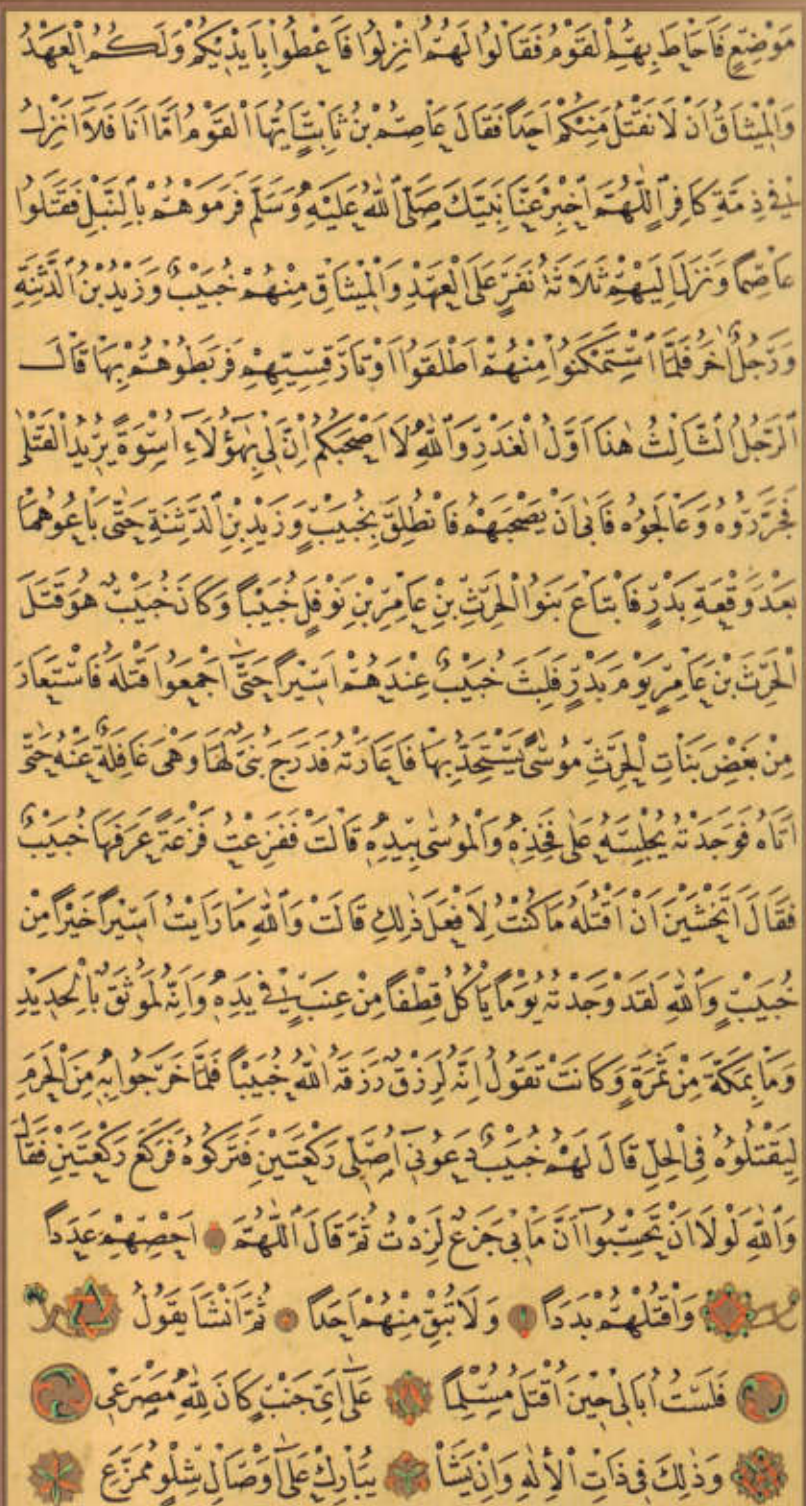 مَوْضِعٍ فَاَحَاطَ بِهِمُ الْقَوْمُ فَقَالُوا لَهُمُ انْزِلُوا فَاَعْطُوا بِاَيْدِيكُمْ وَلَكُمُ الْعَهْدُ
وَالْمِيثَاقُ اَنْ لَا نَقْتُلَ مِنْكُمْ اَحَدًا فَقَالَ عَاصِمُ بْنُ ثَابِتٍ اَيُّهَا الْقَوْمُ اَمَّا اَنَا فَلَا اَنْزِلُ
فِي ذِمَّةِ كَافِرٍ اَللّٰهُمَّ اَخْبِرْ عَنَّا نَبِيَّكَ صَلَّى اللّٰهُ عَلَيْهِ وَسَلَّمَ فَرَمَوْهُمْ بِالنَّبْلِ فَقَتَلُوا
عَاصِمًا وَنَزَلَ اِلَيْهِمْ ثَلَاثَةُ نَفَرٍ عَلَى الْعَهْدِ وَالْمِيثَاقِ مِنْهُمْ خُبَيْبٌ وَزَيْدُ بْنُ الدَّثِنَةِ
وَرَجُلٌ اٰخَرُ فَلَمَّا اسْتَمْكَنُوا مِنْهُمْ اَطْلَقُوا اَوْتَارَ قِسِيِّهِمْ فَرَبَطُوهُمْ بِهَا قَالَ
الرَّجُلُ الثَّالِثُ هٰذَا اَوَّلُ الْغَدْرِ وَاللّٰهِ لَا اَصْحَبُكُمْ اِنَّ لِي بِهٰؤُلَاءِ اُسْوَةً يُرِيدُ الْقَتْلٰى
فَجَرَّرُوهُ وَعَالَجُوهُ فَاَبٰى اَنْ يَصْحَبَهُمْ فَانْطُلِقَ بِخُبَيْبٍ وَزَيْدِ بْنِ الدَّثِنَةِ حَتّٰى بَاعُوهُمَا
بَعْدَ وَقْعَةِ بَدْرٍ فَابْتَاعَ بَنُوا الْحٰرِثِ بْنِ عَامِرِ بْنِ نَوْفَلٍ خُبَيْبًا وَكَانَ خُبَيْبٌ هُوَ قَتَلَ
الْحٰرِثَ بْنَ عَامِرٍ يَوْمَ بَدْرٍ فَلَبِثَ خُبَيْبٌ عِنْدَهُمْ اَسِيرًا حَتّٰى اَجْمَعُوا قَتْلَهُ فَاسْتَعَارَ
مِنْ بَعْضِ بَنَاتِ الْحٰرِثِ مُوسٰى يَسْتَحِدُّ بِهَا فَاَعَارَتْهُ فَدَرَجَ بُنَيٌّ لَهَا وَهْيَ غَافِلَةٌ عَنْهُ حَتّٰى
اَتَاهُ فَوَجَدَتْهُ يُجْلِسُهُ عَلٰى فَخِذِهِ وَالْمُوسٰى بِيَدِهِ قَالَتْ فَفَزِعْتُ فَزْعَةً عَرَفَهَا خُبَيْبٌ
فَقَالَ اَتَخْشَيْنَ اَنْ اَقْتُلَهُ مَا كُنْتُ لِاَفْعَلَ ذٰلِكِ قَالَتْ وَاللّٰهِ مَا رَاَيْتُ اَسِيرًا خَيْرًا مِنْ
خُبَيْبٍ وَاللّٰهِ لَقَدْ وَجَدْتُهُ يَوْمًا يَاْكُلُ قِطْفًا مِنْ عِنَبٍ فِي يَدِهِ وَاِنَّهُ لَمُوثَقٌ بِالْحَدِيدِ
وَمَا بِمَكَّةَ مِنْ ثَمَرَةٍ وَكَانَتْ تَقُولُ اِنَّهُ لَرِزْقٌ رَزَقَهُ اللّٰهُ خُبَيْبًا فَلَمَّا خَرَجُوا بِهِ مِنَ الْحَرَمِ
لِيَقْتُلُوهُ فِي الْحِلِّ قَالَ لَهُمْ خُبَيْبٌ دَعُونِي اُصَلِّي رَكْعَتَيْنِ فَتَرَكُوهُ فَرَكَعَ رَكْعَتَيْنِ فَقَالَ
وَاللّٰهِ لَوْلَا اَنْ تَحْسِبُوا اَنَّ مَا بِي جَزَعٌ لَزِدْتُ ثُمَّ قَالَ اَللّٰهُمَّ اَحْصِهِمْ عَدَدًا
وَاقْتُلْهُمْ بَدَدًا وَلَا تُبْقِ مِنْهُمْ اَحَدًا ثُمَّ اَنْشَاَ يَقُولُ
فَلَسْتُ اُبَالِي حِينَ اُقْتَلُ مُسْلِمًا عَلٰى اَيِّ جَنْبٍ كَانَ لِلّٰهِ مَصْرَعِي
وَذٰلِكَ فِي ذَاتِ الْاِلٰهِ وَاِنْ يَشَاْ يُبَارِكْ عَلٰى اَوْصَالِ شِلْوٍ مُمَزَّعِ